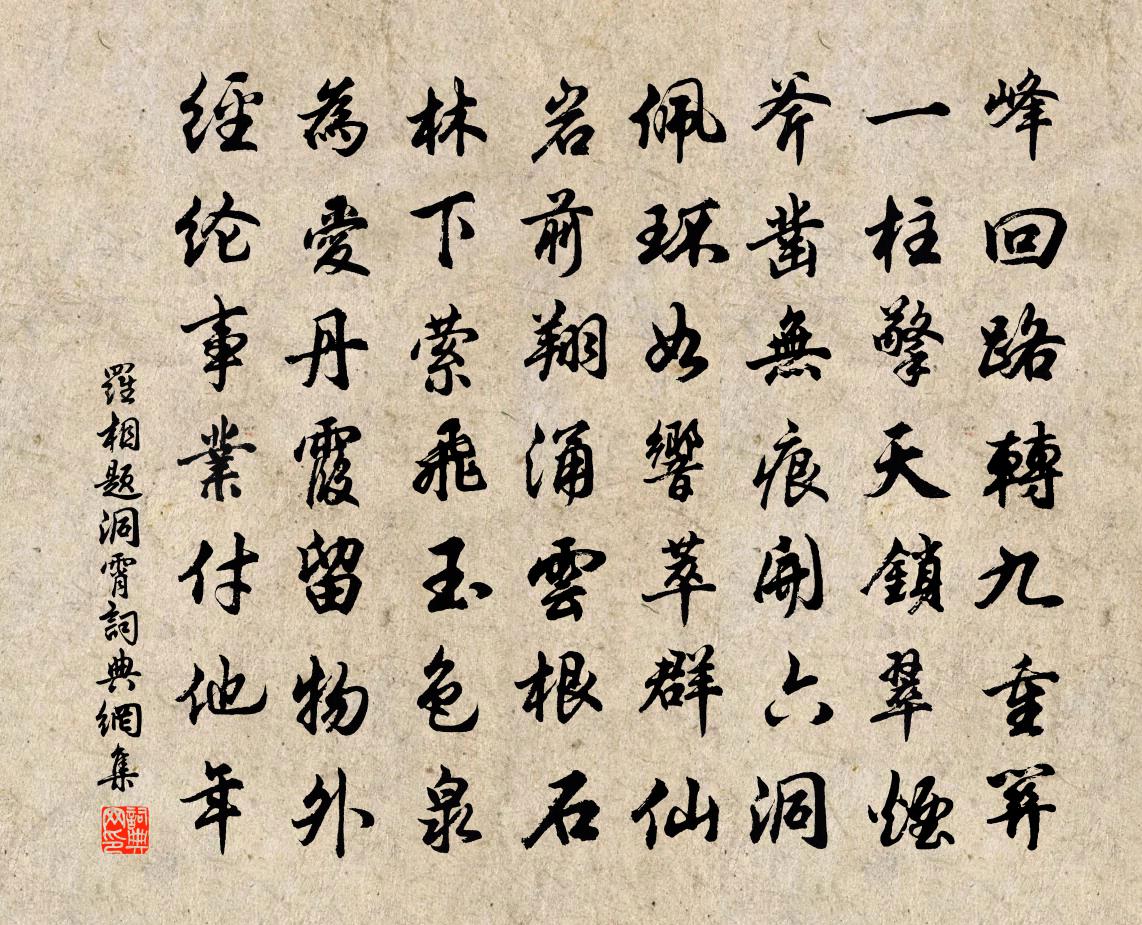 峰回路轉九重
一柱擎天鎖翠煙
斧鑿無痕開六洞
佩环如響萃群仙
岩前翔涌雲根石
林下萦飛玉色泉
為愛丹霞留物外
經纶事業付他年
羅相题洞霄詞典網集
詞典网印